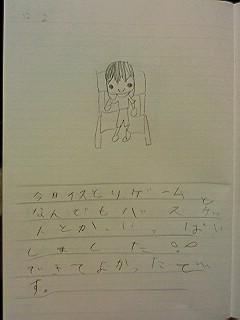 今日イスとりゲームと
なんでもバスケ
トとか、いっぱい
しました。
できてよかったで
す。